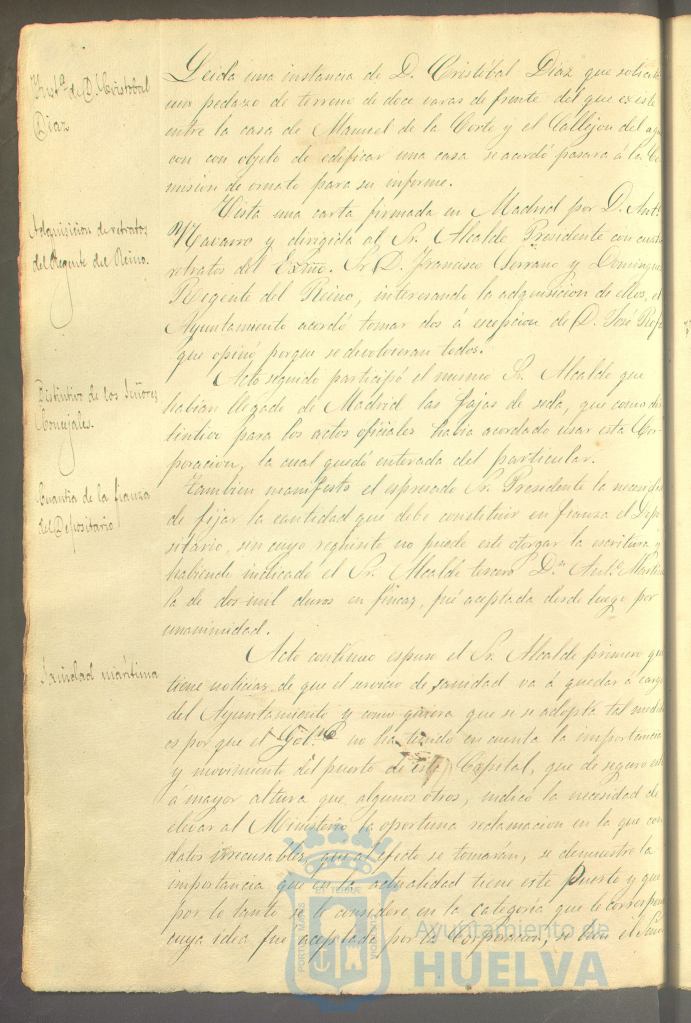 Inst.ª de D. Cristobal
Diaz
Leida una instancia de D. Cristóbal Diaz que solicita
un pedazo de terreno de doce varas de frente del que existe
entre la casa de Manuel de la Corte y el Callejon del
con objeto de edificar una casa se acordó pasara á la Co
mision de ornato para su informe.
Adquisicion de retratos
del Regente del Reino.
Vista una carta firmada en Madrid por D. Ant.º
Navarro y dirigida al Sr. Alcalde Presidente con cuatro
retratos del Exmo. Sr. D. Francisco Serrano y Dominguez
Regente del Reino, interesando la adquisicion de ellos, el
Ayuntamiento acordó tomar dos á escepcion de D. José
que opinó porque se devolvieran todos.
Distintivo de los Señores
Concejales.
Acto seguido participó el mismo Sr. Alcalde que
habian llegado de Madrid las fajas de seda, que como dis
tintivo para los actos oficiales habia acordado usar esta Cor
poracion, la cual quedó enterada del particular.
Cuantia de la fianza
del Depositario
Tambien manifestó el espresado Sr. Presidente la necesidad
de fijar la cantidad que debe constituir en fianza el Depo
sitario, sin cuyo requisito no puede este otorgar la escritura, y
habiendo indicado el Sr. Alcalde tercero D.n Ant.º
la de dos mil duros en fincas, fué aceptada desde luego por
unanimidad.
Sanidad marítima
Acto contínuo espuso el Sr. Alcalde primero que
tiene noticias de que el servicio de sanidad va á quedar á cargo
del Ayuntamiento y como quiera que si se adopta tal medida
es por que el Gob.no no ha tenido en cuenta la importancia
y movimiento del puerto de esta Capital, que de seguro está
á mayor altura que algunos otros, indicó la necesidad de
elevar al Ministerio la oportuna reclamacion en la que con
datos irrecusables, que al efecto se tomarán, se demuestre la
importancia que en la actualidad tiene este Puerto y que
por lo tanto se le considere en la categoría que le corresponde
cuya idea fué aceptada por la Corporacion, si bien el Señor
Ayuntamiento de
HUELVA